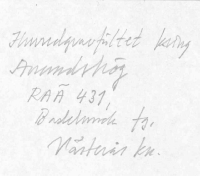 Huvudgravfältet kring
Anundshög
RAÄ 431,
Badelunda fg.
Västerås kn.